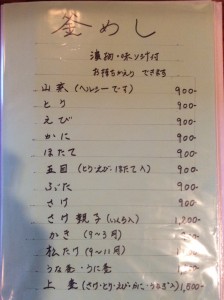 釜めし
漬物・味噌汁付
お持ちかえり できます
山菜 (ヘルシーです) 900-
とり 900-
えび 900-
かに 900-
ほたて 900-
五目 (とり・えび・ほたて入) 900-
ぶた 900-
さけ 900-
さけ親子 (いくら入) 1,200-
かき (9~3月) 900-
松たけ (9~11月) 1,500-
うな釜・うに釜 1,500-
上釜 (さけ・とり・えび・かに・うなぎ入) 1,500-